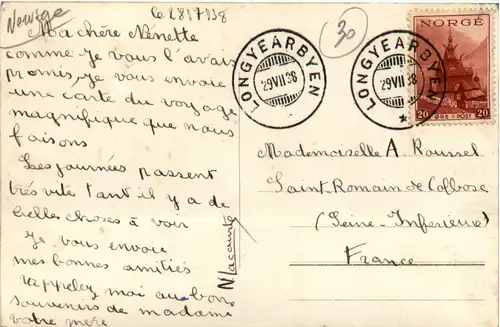 Norvège
le 28 7 38
30
Ma chère Nenette
comme je vous l'avais
promis, je vous envoie
une carte du voyage
magnifique que nous
faisons
Les journées passent
très vite tant il y a de
belles choses à voir
Je vous envoie
mes bonnes amitiés
rappelez moi au bon
souvenirs de madame
votre mère
LONGYEARBYEN
29 VII 38
LONGYEARBYEN
29 VII 38
NORGE
20 ØRE POST 20
Mademoiselle A. Roussel
Saint Romain de Colbosc
(Seine-Inférieure)
France